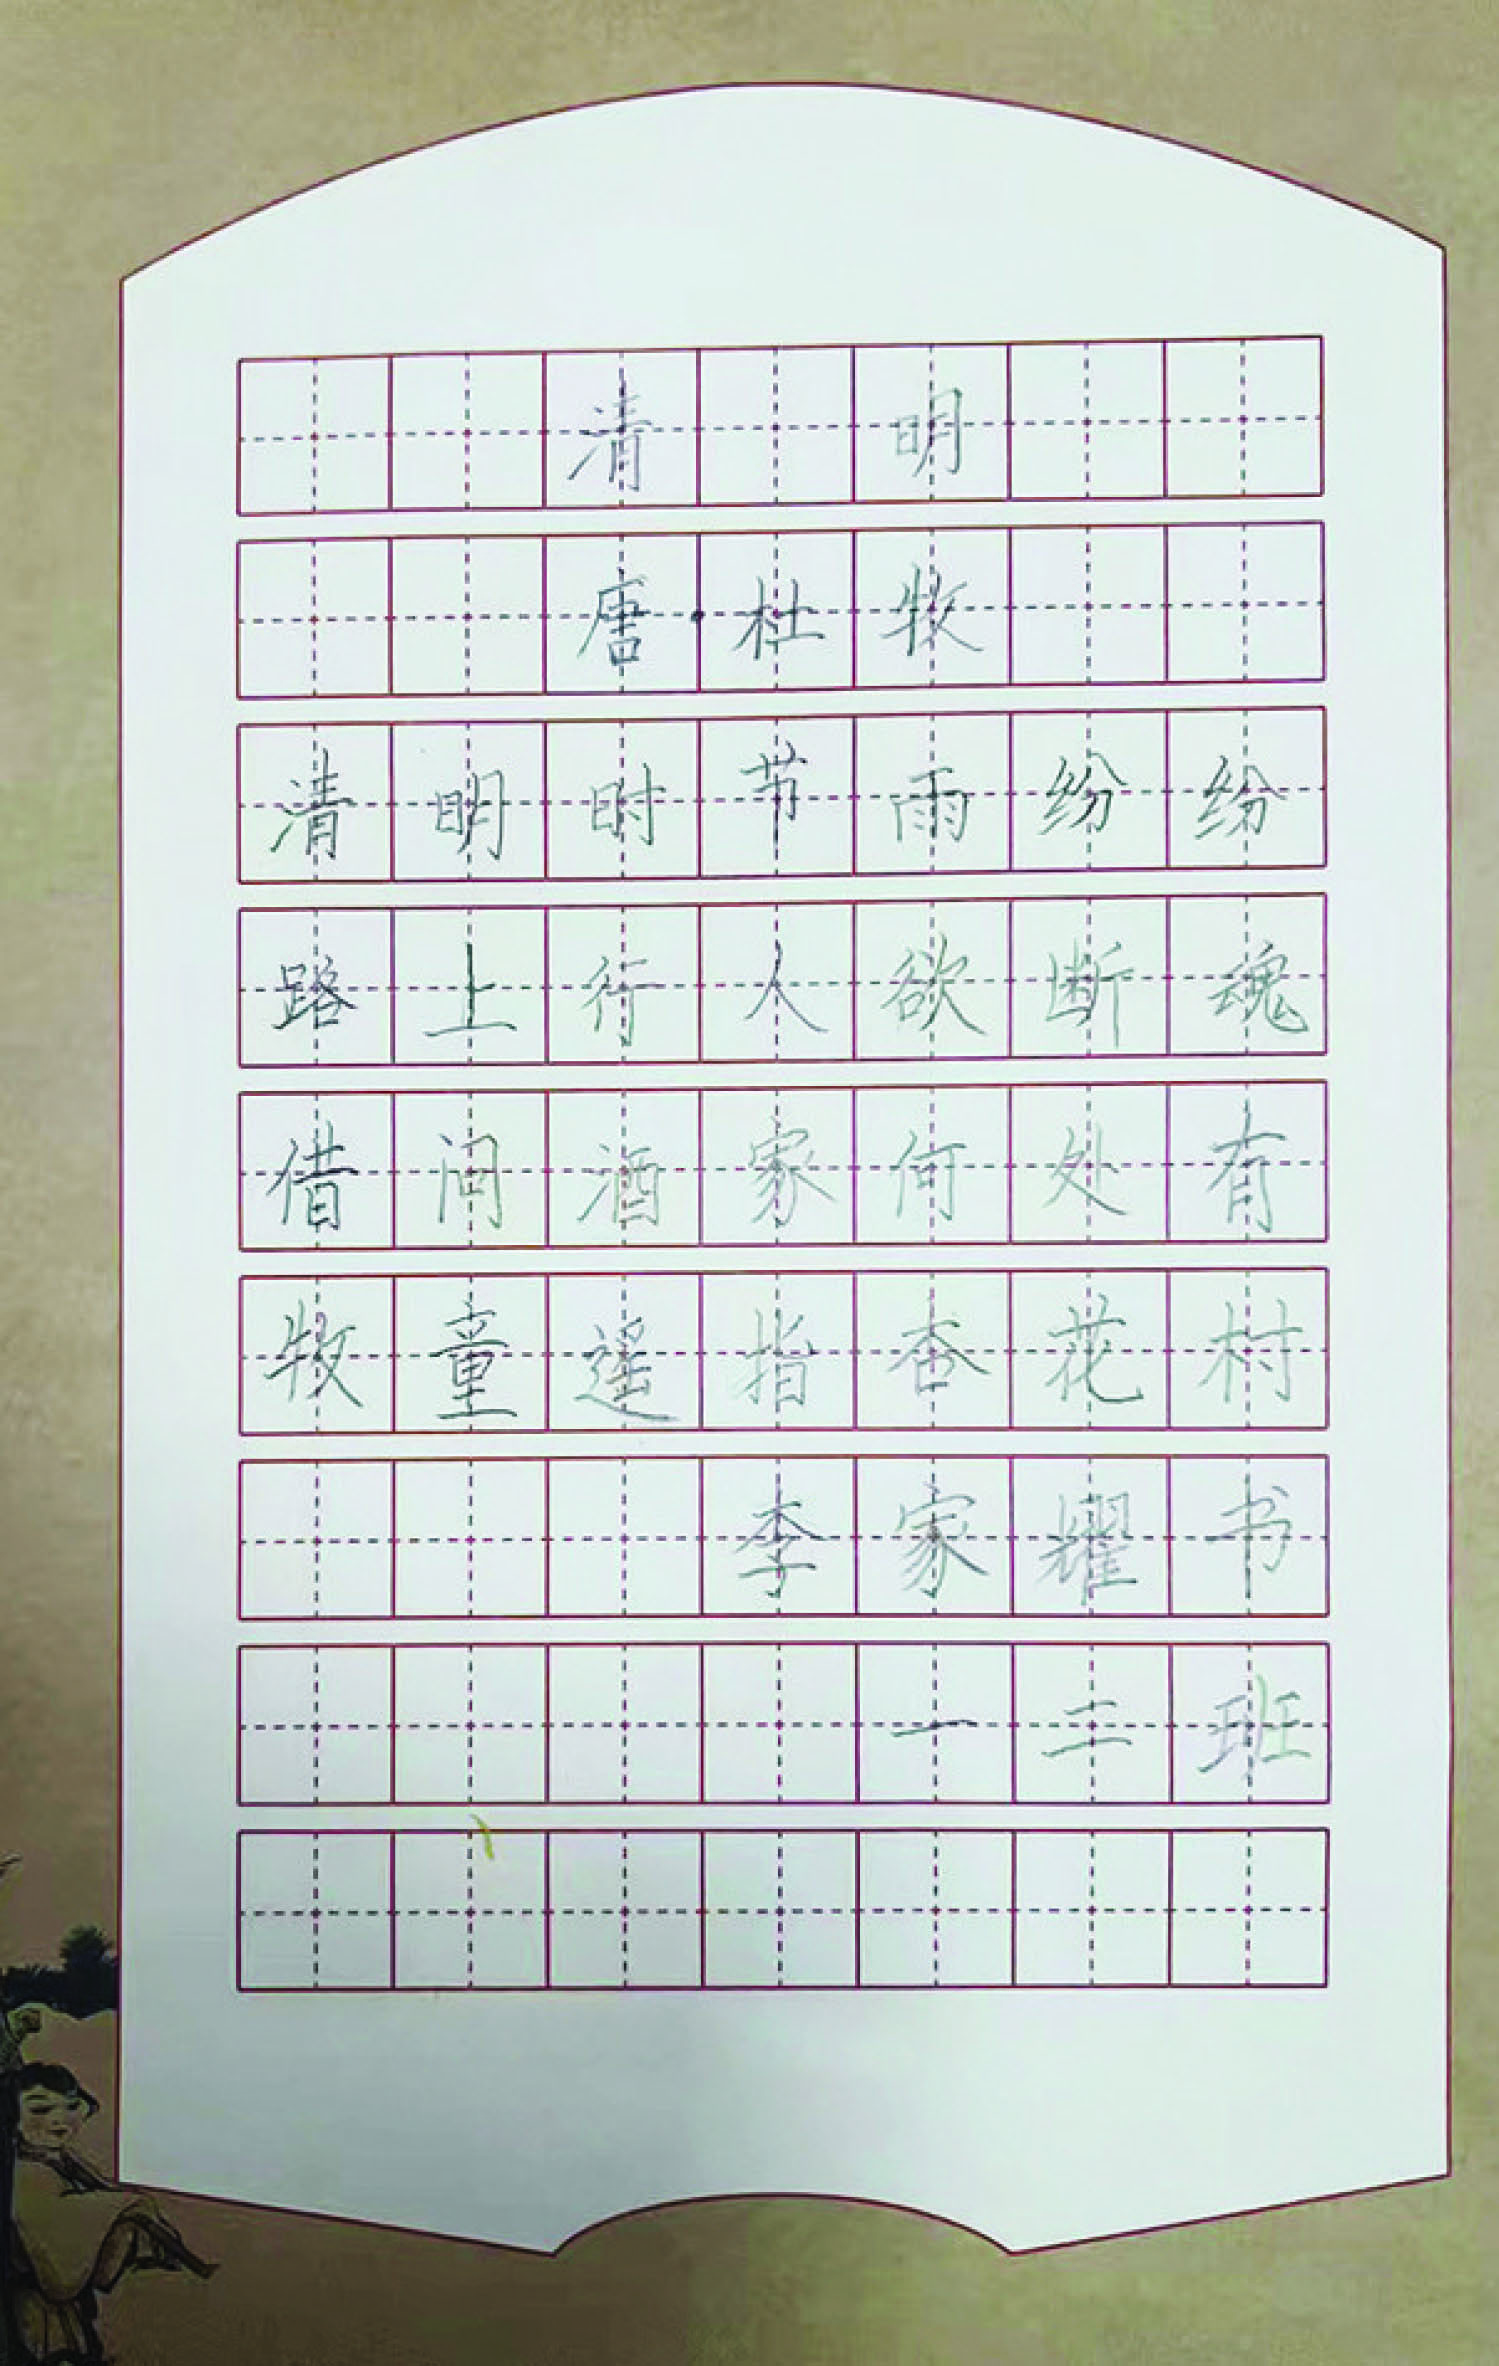 清明
唐·杜牧
清明时节雨纷纷
路上行人欲断魂
借问酒家何处有
牧童遥指杏花村
李家耀书
一二班